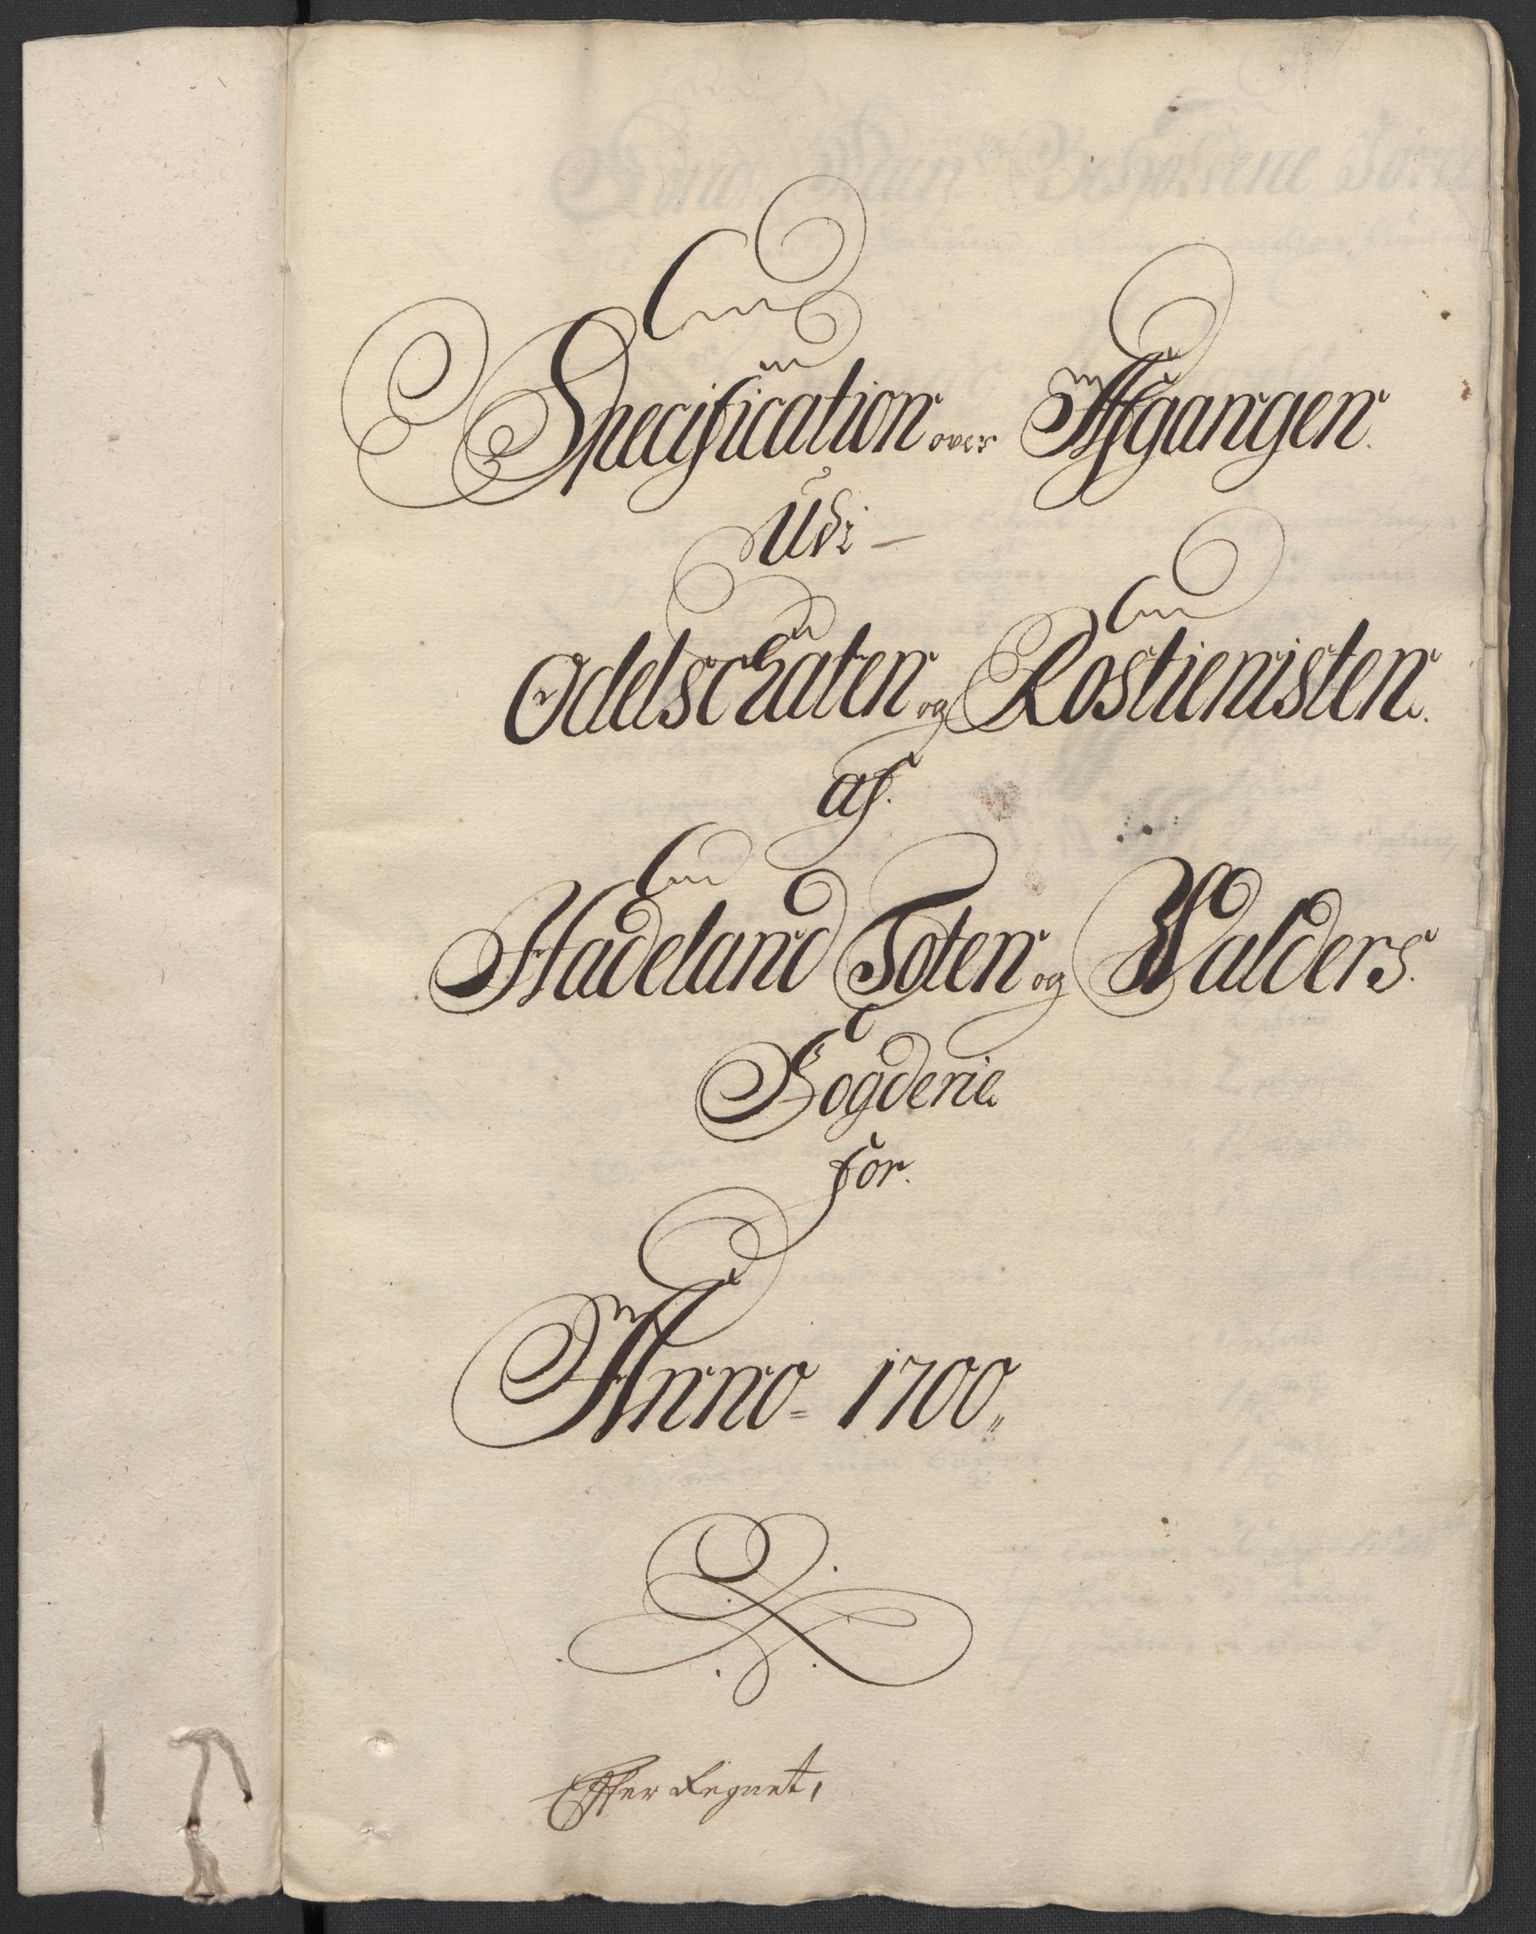 Specification over Afgangen.
Udi
Odelschaten og Rostienisten.
af.
Hadeland Toten og Walders.
Fogderie
for.
Anno 1700,,
Efter Regnet,